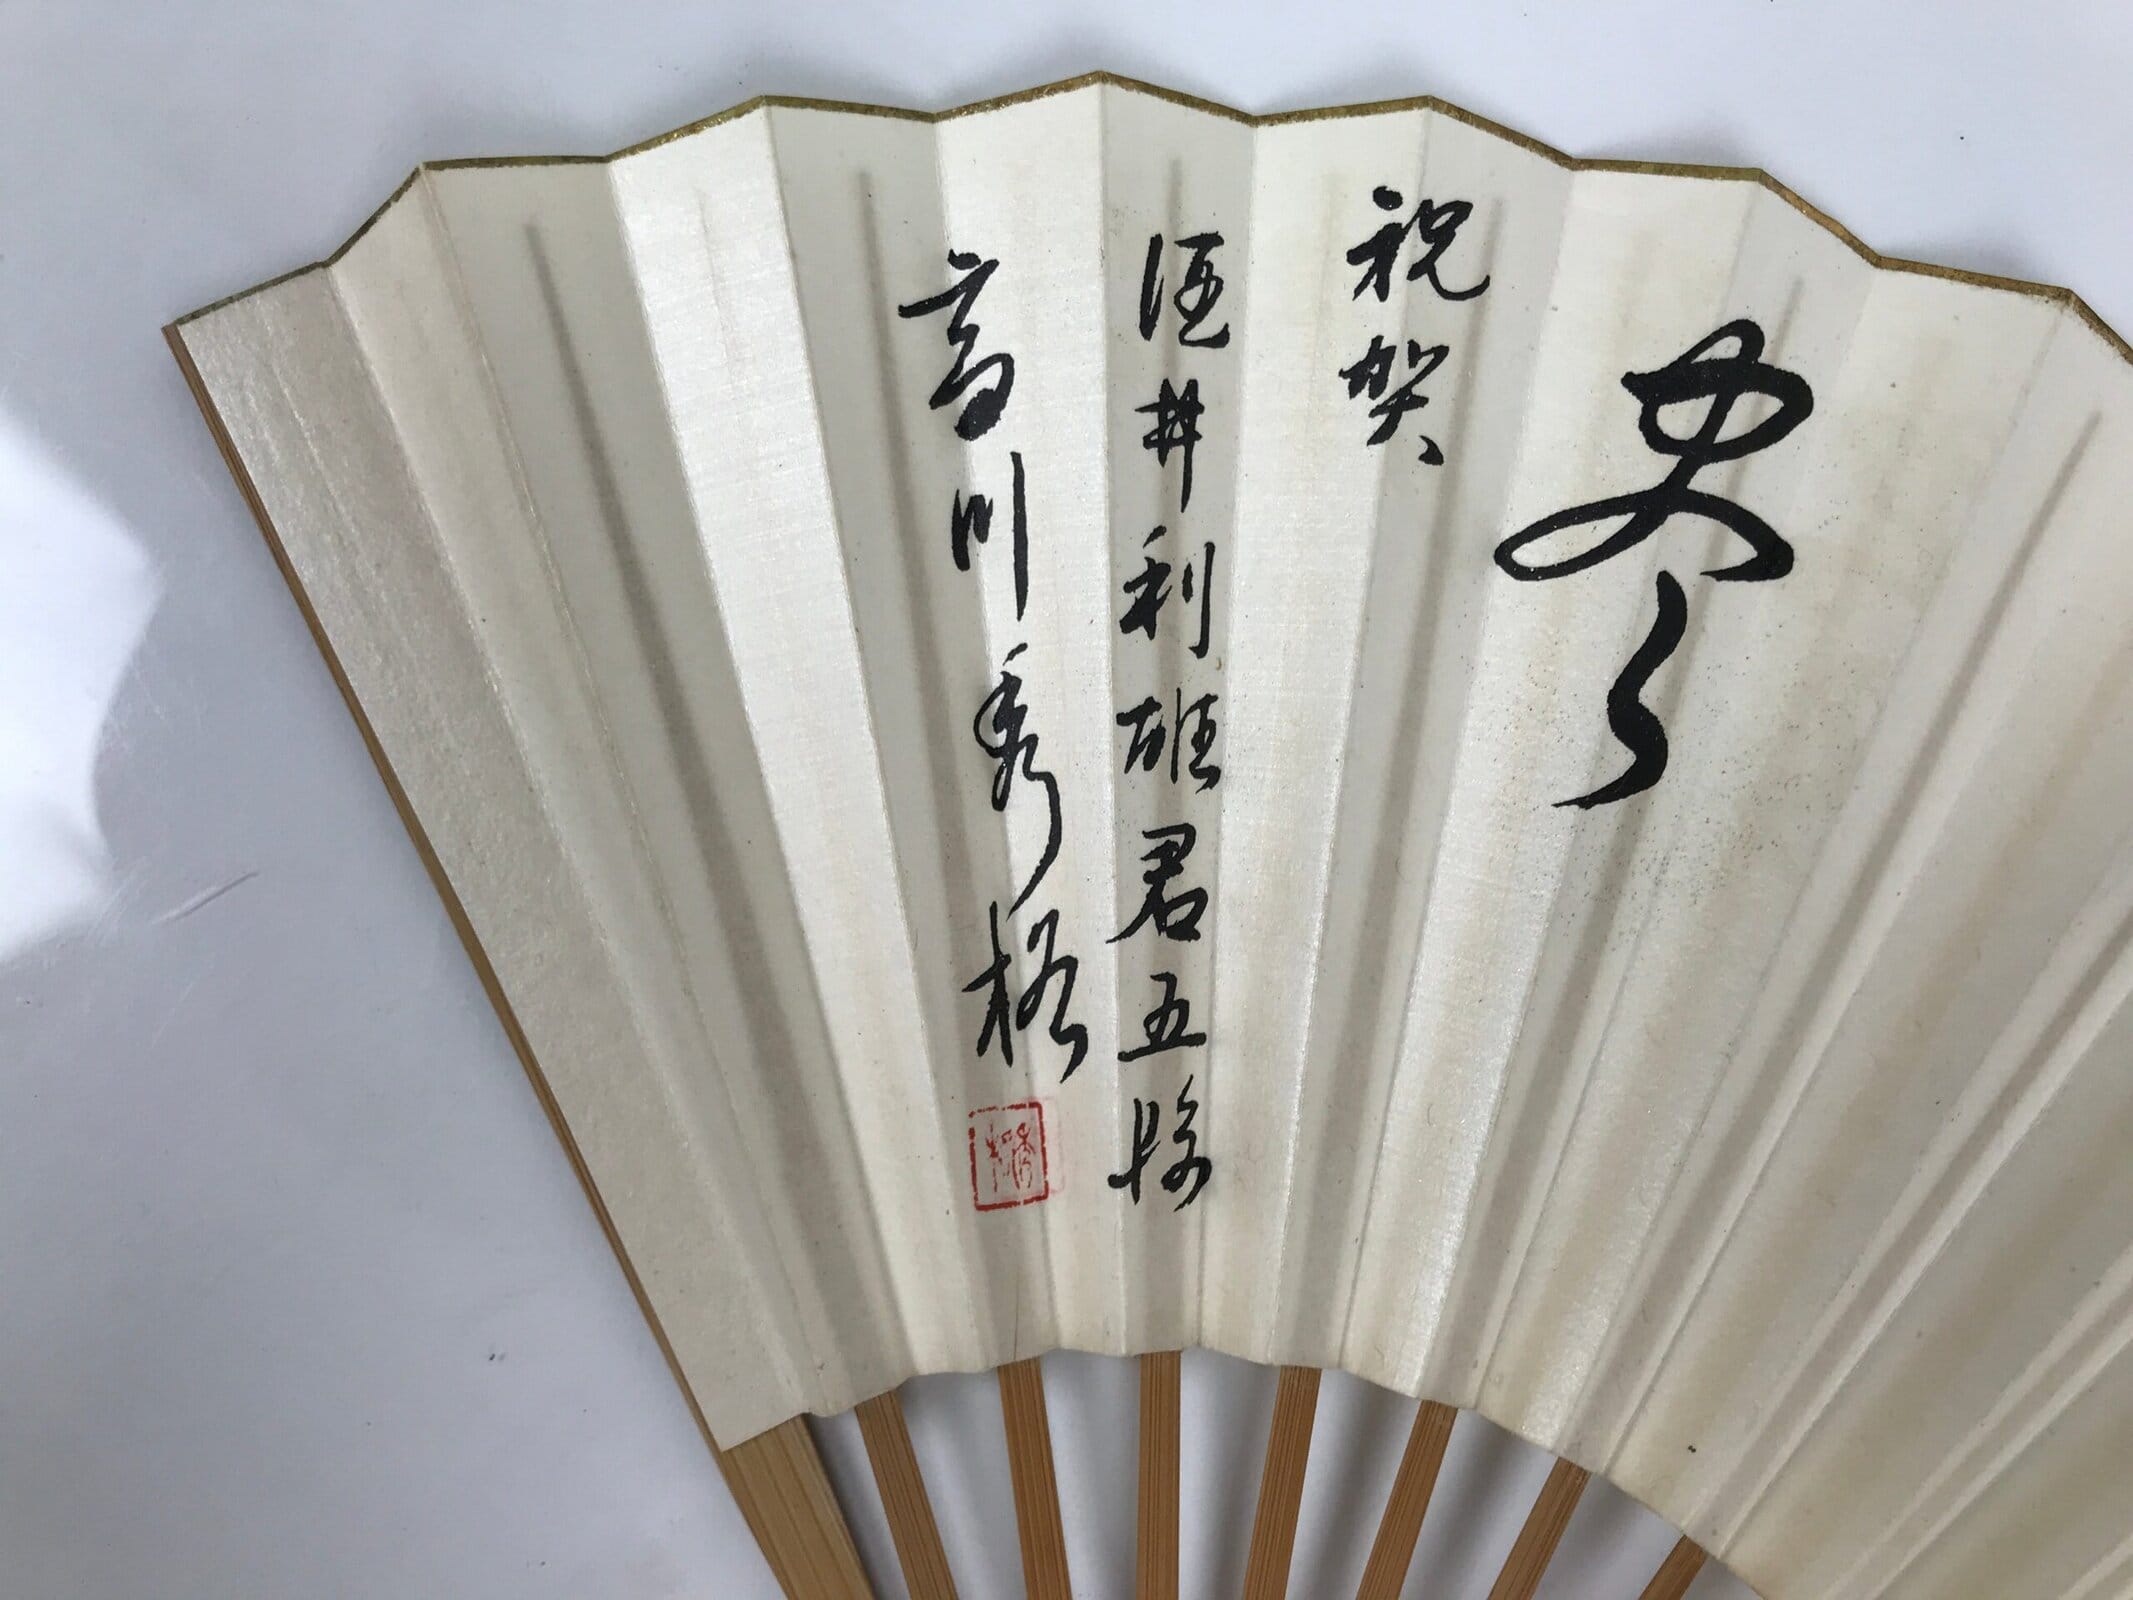 祝賀
酒井利雄君五段
高川秀格
秀格